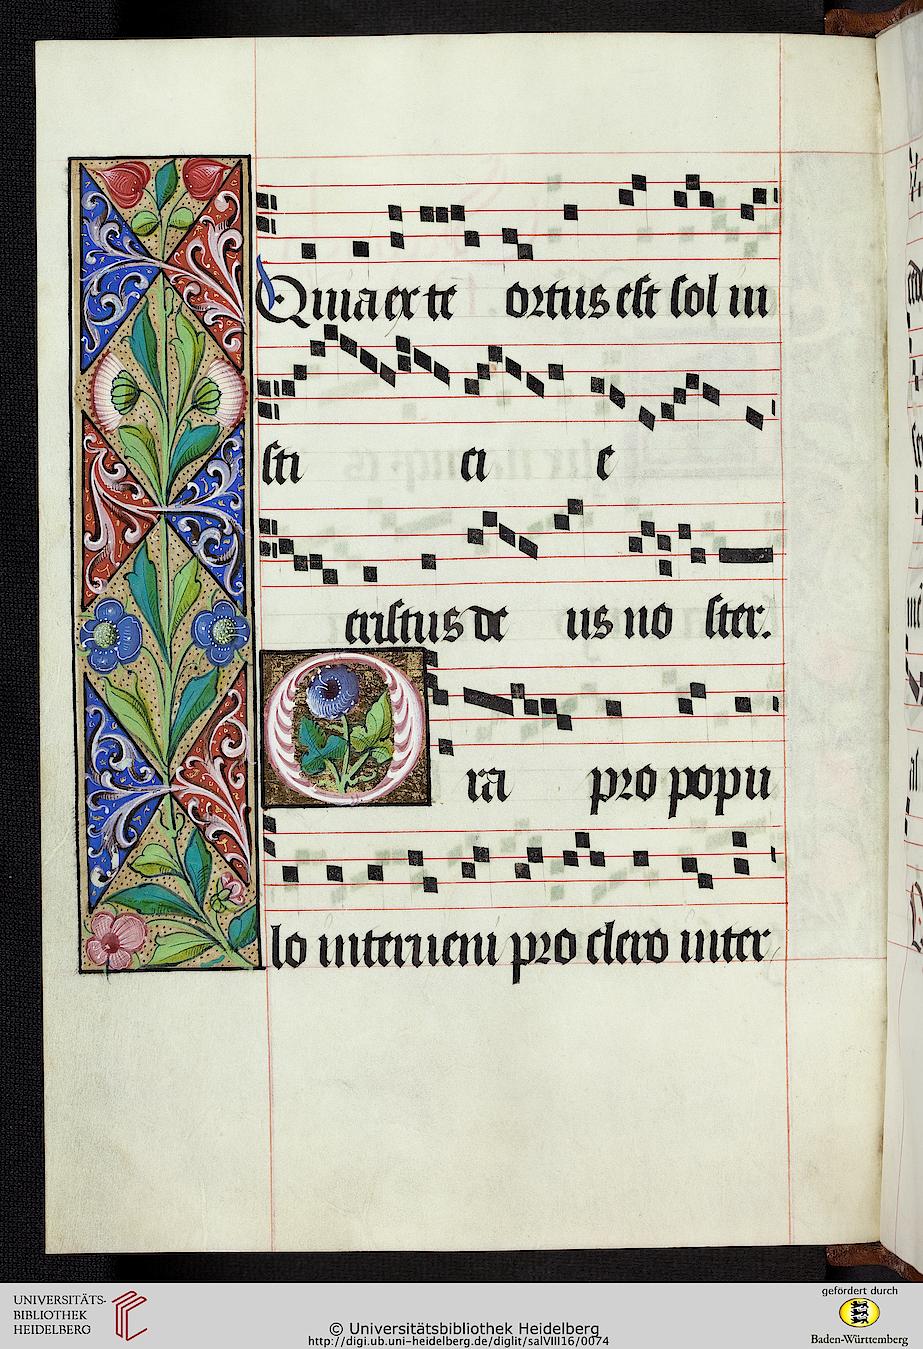 Quia ex te ortus est sol iu
sti ci e
cristus de us no ster.
O ra pro popu
lo interueni pro clero inter
UNIVERSITÄTS-
BIBLIOTHEK
HEIDELBERG
© Universitätsbibliothek Heidelberg
http://digi.ub.uni-heidelberg.de/diglit/salVIII16/0074
gefördert durch
Baden-Württemberg